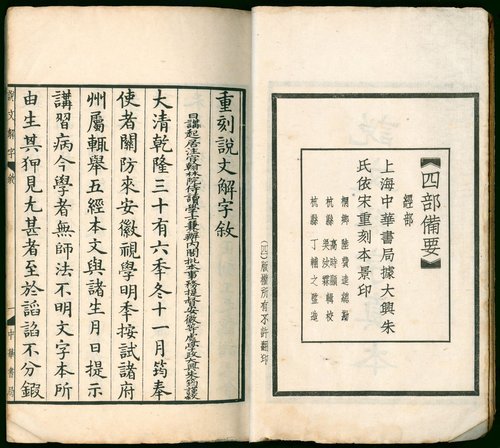 【四部備要】
經部
上海中華書局據大興朱
氏依宋重刻本景印
桐鄉 陸費逵總勘
杭縣 高時顯 吳汝霖 輯校
杭縣 丁輔之監造
(四)版權所有不許翻印
重刻說文解字敘
日講起居注官翰林院侍讀學士兼辦內閣批本事務提督安徽等處學政大興朱筠謹譔
大清乾隆三十有六季冬十一月筠奉
使者關防來安徽視學明季按試諸府
州屬輒舉五經本文與諸生月日提示
講習病今學者無師法不明文字本所
由生其狎見尤甚者至於謟諂不分鍜
說文解字 敘
中華書局